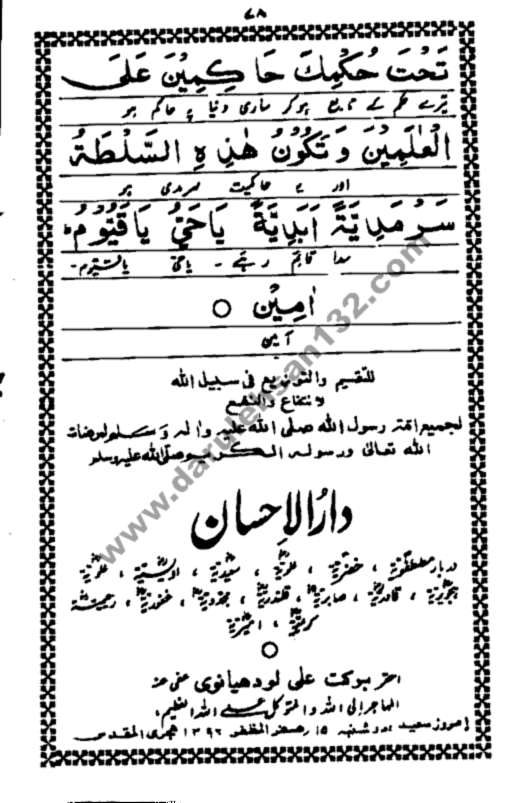 ٤٨
تَحْتَ حُكْمِكَ حَاكِمِيْنَ عَلَى
تیرے حکم کے تابع ہوکر ساری دنیا پہ حاکم ہو
الْعٰلَمِيْنَ وَتَكُوْنُ هٰذِهِ السَّلْطَةُ
اور یہ حاکمیت سرمدی ہو
سَرْمَدِيَّةً اَبَدِيَّةً يَاحَيُّ يَاقَيُّوْمُ
سدا قائم رہے ۔ یاحی یاقیوم۔
اٰمِيْن ○
آمین
للتقسیم والتوزیع فی سبیل اللہ
لانتفاع والنفع
لجمیع امۃ رسول اللہ صلی اللہ علیہ والہ وسلم لمرضات
اللہ تعالیٰ ورسولہ المکرم صلی اللہ علیہ وسلم
دارُ الاِحسان
دربار مصطفویہ ، خضریہ ، علویہ ، سعیدیہ ، اویسیہ ، علویہ
ہجویریہ ، قادریہ ، صابریہ ، قلندریہ ، مجددیہ ، غفوریہ ، رحیمیہ
کریمیہ ، امیریہ
○
احقر برکت علی لودھیانوی عفی عنہ
المہاجر الی اللہ والمتوکل علی اللہ العظیم
امروز سعید دوشنبہ ۱۵ صفر المظفر ۱۳۹۶ ہجری المقدس
www.darulehsan132.com